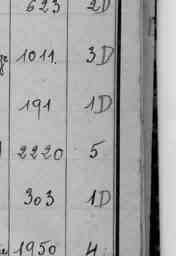 623 2D
1011. 3D
191 1D
2220 5
303 1D
1950 4